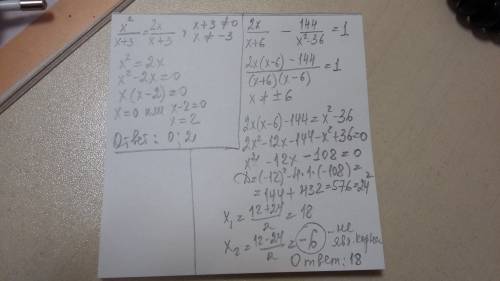 x²/(x+3) = 2x/(x+3), x+3≠0
x≠-3
x² = 2x
x²-2x=0
x(x-2)=0
x=0 или x-2=0
x=2
Ответ: 0; 2
2x/(x+6) - 144/(x²-36) = 1
(2x(x-6)-144)/((x+6)(x-6)) = 1
x ≠ ±6
2x(x-6)-144=x²-36
2x²-12x-144-x²+36=0
x²-12x-108=0
D=(-12)²-4·1·(-108)=
=144+432=576=24²
x₁=(12+24)/2=18
x₂=(12-24)/2=-6 - не
явл. корнем
Ответ: 18